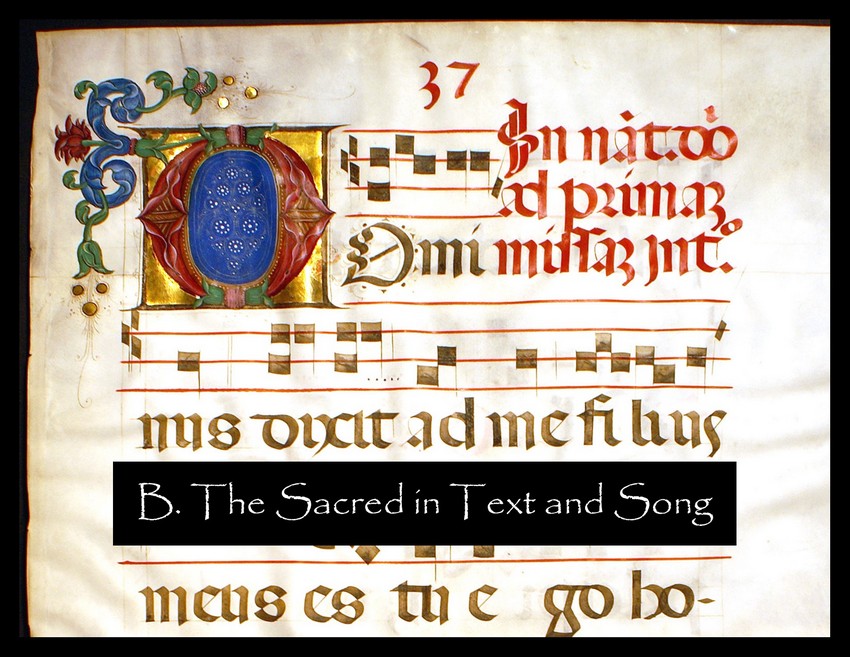 37
In nāt. dō
ad primaꝫ
Domi missaꝫ Int°.
nus dixit ad me filius
B. The Sacred in Text and Song
meus es tu e go ho-